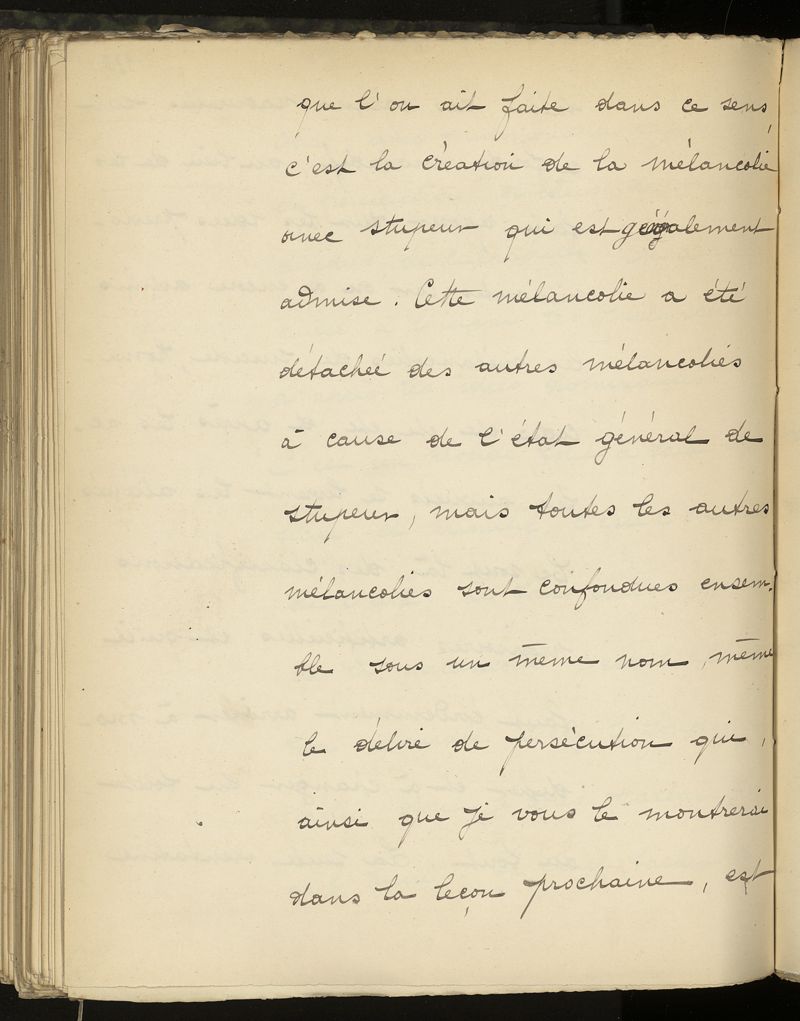 que l'on ait faite dans ce sens,
c'est la création de la mélancolie
avec stupeur qui est également
admise. Cette mélancolie a été
détachée des autres mélancolies
à cause de l'état général de
stupeur, mais toutes les autres
mélancolies sont confondues ensem-
ble sous un même nom, même
le délire de persécution qui,
ainsi que je vous le montrerai
dans la leçon prochaine, est